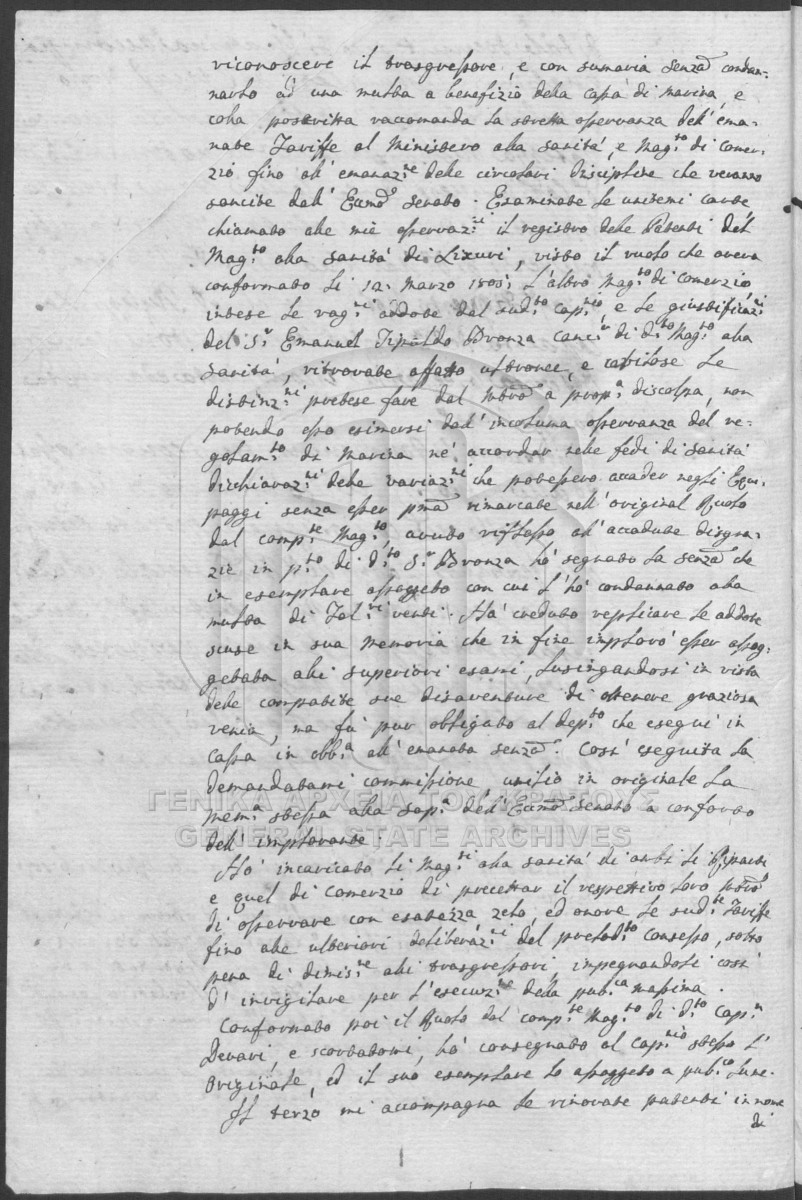 riconoscere il trasgressore, e con sumaria senzā condan-
narlo ad una multa a benefizio della cassa di marina, e
colla poscritta raccomanda la stretta osservanza dell' ema-
nate Tariffe al Ministero alla sanità, e Mag.to di Comer-
zio fino all' emanaz.ne delle circolari Discipline che verano
sancite dall' Eccmo Senato. Esaminate le unitemi carte
chiamato alle mie osservaz.ni il registro delle Patenti del
Mag.to alla sanità di Lixuri, visto il ruolo che aveva
conformato li 12: Marzo 1805: l'altro Mag.to di Comerzio,
intese le rag.ni addotte dal sud.to Cap.nio, e le giustificaz.ni
del S.r Emanuel Tipaldo Bronza Canc.r di d.to Mag.to alla
sanità, ritrovate affatto ultronee, e le
distinz.ni pretese fare dal a prop.a discolpa, non
potendo esso esimersi dall' incolume osservanza del re-
golam.to di Marina né accordar nelle fedi di sanità
dicchiaraz.ni delle variaz.ni che potessero accader negli Equi-
paggi senza esser pma rimarcate nell' original Ruolo
dal comp.te Mag.to, avuto riflesso all' accadute disgra-
zie in p.to di d.to S.r Bronza hò segnato la senzā che
in esemplare assoggetto con cui l'hò condannato alla
multa di Tal.ri venti. Hà creduto replicare le addotte
scuse in sua Memoria che in fine implorò esser assog-
gettata alli superiori esami, lusingandosi in vista
delle compatite sue disavventure di ottenere graziosa
venia, ma fù pur obligato al dep.to che eseguì in
Cassa in obb.a all' emanata senzā. Così eseguita la
demandatami commissione unisco in originale la
Mem.a stessa alla sap.a dell' Eccmo Senato a conforto
dell' implorante.
Hò incaricato li Mag.ti alla sanità di ambi li Riparti
e quel di Comerzio di precettar il respettivo loro
di osservare con esatezza zelo, ed onore le sud.te Tariffe
fino alle ulteriori deliberaz.ni del prelod.to Consesso, sotto
pena di dimis.ne alli trasgressori, impegnandoli così
d' invigilare per l'esecuz.ne della pub.ca massima.
Conformato poi il Ruolo dal comp.te Mag.to di d.to Cap.n
Devari, e scortatomi, hò consegnato al Cap.nio stesso l'
originale, ed il suo esemplare lo assoggetto a pub.co lume.
Il terzo mi accompagna le rinovate patenti in nome
di
ΓΕΝΙΚΑ ΑΡΧΕΙΑ ΤΟΥ ΚΡΑΤΟΥΣ
GENERAL STATE ARCHIVES